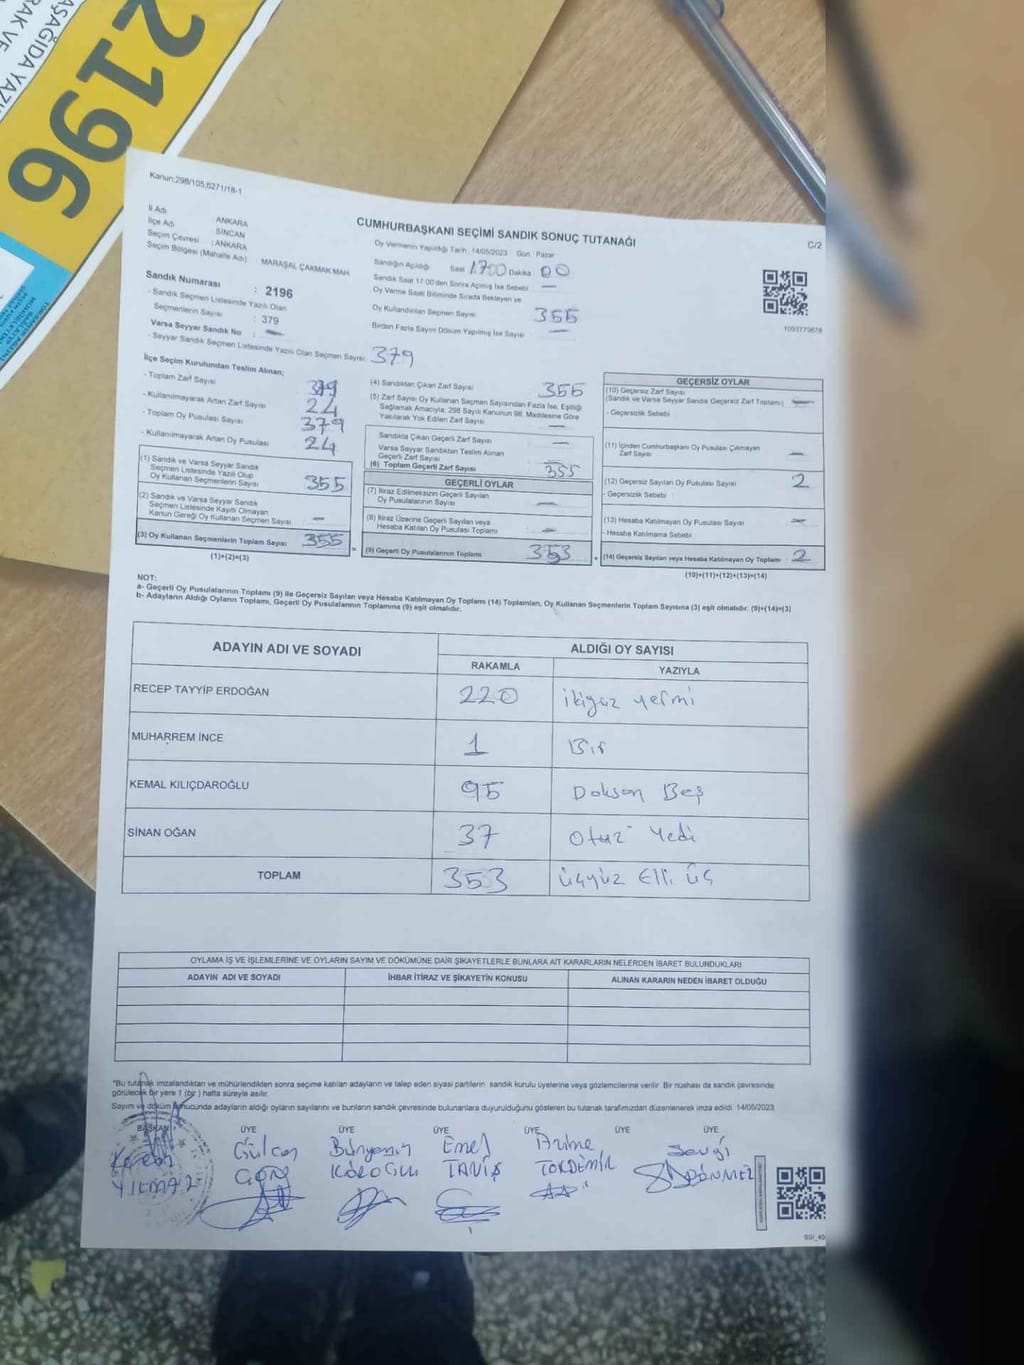 2196
AŞAĞIDA YAZI
RAK VE
Kanun:298/105,6271/18-1
İl Adı ANKARA
İlçe Adı SİNCAN
Seçim Çevresi : ANKARA
Seçim Bölgesi (Mahalle Adı) : MARAŞAL ÇAKMAK MAH.
Sandık Numarası : 2196
- Sandık Seçmen Listesinde Yazılı Olan
Seçmenlerin Sayısı : 379
Varsa Seyyar Sandık No : —
- Seyyar Sandık Seçmen Listesinde Yazılı Olan Seçmen Sayısı: 379
CUMHURBAŞKANI SEÇİMİ SANDIK SONUÇ TUTANAĞI
C/2
Oy Vermenin Yapıldığı Tarih : 14/05/2023 Gün : Pazar
Sandığın Açıldığı Saat 17.00 Dakika 00
Sandık Saat 17:00'den Sonra Açılmış İse Sebebi —
Oy Verme Saati Bitiminde Sırada Bekleyen ve
Oy Kullandırılan Seçmen Sayısı 355
Birden Fazla Sayım Döküm Yapılmış İse Sayısı —
1093779878
İlçe Seçim Kurulundan Teslim Alınan;
- Toplam Zarf Sayısı 379
- Kullanılmayarak Artan Zarf Sayısı 24
- Toplam Oy Pusulası Sayısı 379
- Kullanılmayarak Artan Oy Pusulası 24
(1) Sandık ve Varsa Seyyar Sandık
Seçmen Listesinde Yazılı Olup
Oy Kullanan Seçmenlerin Sayısı 355
(2) Sandık ve Varsa Seyyar Sandık
Seçmen Listesinde Kayıtlı Olmayan
Kanun Gereği Oy Kullanan Seçmen Sayısı —
(3) Oy Kullanan Seçmenlerin Toplam Sayısı 355
(1)+(2)=(3)
(4) Sandıktan Çıkan Zarf Sayısı 355
(5) Zarf Sayısı Oy Kullanan Seçmen Sayısından Fazla İse, Eşitliği
Sağlamak Amacıyla, 298 Sayılı Kanunun 98. Maddesine Göre
Yakılarak Yok Edilen Zarf Sayısı —
Sandıkta Çıkan Geçerli Zarf Sayısı —
Varsa Seyyar Sandıktan Teslim Alınan
Geçerli Zarf Sayısı —
(6) Toplam Geçerli Zarf Sayısı 355
GEÇERLİ OYLAR
(7) İtiraz Edilmeksizin Geçerli Sayılan
Oy Pusulalarının Sayısı —
(8) İtiraz Üzerine Geçerli Sayılan veya
Hesaba Katılan Oy Pusulası Toplamı —
= (9) Geçerli Oy Pusulalarının Toplamı 353
GEÇERSİZ OYLAR
(10) Geçersiz Zarf Sayısı
(Sandık ve Varsa Seyyar Sandık Geçersiz Zarf Toplamı) —
- Geçersizlik Sebebi
(11) İçinden Cumhurbaşkanı Oy Pusulası Çıkmayan
Zarf Sayısı —
(12) Geçersiz Sayılan Oy Pusulası Sayısı 2
- Geçersizlik Sebebi :
(13) Hesaba Katılmayan Oy Pusulası Sayısı —
- Hesaba Katılmama Sebebi
+ (14) Geçersiz Sayılan veya Hesaba Katılmayan Oy Toplamı 2
(10)+(11)+(12)+(13)=(14)
NOT:
a- Geçerli Oy Pusulalarının Toplamı (9) ile Geçersiz Sayılan veya Hesaba Katılmayan Oy Toplamı (14) Toplamları, Oy Kullanan Seçmenlerin Toplam Sayısına (3) eşit olmalıdır. (9)+(14)=(3)
b- Adayların Aldığı Oyların Toplamı, Geçerli Oy Pusulalarının Toplamına (9) eşit olmalıdır.
ADAYIN ADI VE SOYADI ALDIĞI OY SAYISI
RAKAMLA YAZIYLA
RECEP TAYYİP ERDOĞAN 220 ikiyüz yermi
MUHARREM İNCE 1 Bir
KEMAL KILIÇDAROĞLU 95 Dokson Beş
SİNAN OĞAN 37 Otuz Yedi
TOPLAM 353 üçyüz Elli üç
OYLAMA İŞ VE İŞLEMLERİNE VE OYLARIN SAYIM VE DÖKÜMÜNE DAİR ŞİKAYETLERLE BUNLARA AİT KARARLARIN NELERDEN İBARET BULUNDUKLARI
ADAYIN ADI VE SOYADI İHBAR İTİRAZ VE ŞİKAYETİN KONUSU ALINAN KARARIN NEDEN İBARET OLDUĞU
*Bu tutanak imzalandıktan ve mühürlendikten sonra seçime katılan adayların ve talep eden siyasi partilerin sandık kurulu üyelerine veya gözlemcilerine verilir. Bir nüshası da sandık çevresinde
görülecek bir yere 1 (bir ) hafta süreyle asılır.
Sayım ve döküm sonucunda adayların aldığı oyların sayılarını ve bunların sandık çevresinde bulunanlara duyurulduğunu gösteren bu tutanak tarafımızdan düzenlenerek imza edildi. 14/05/2023
BAŞKAN ÜYE ÜYE ÜYE ÜYE ÜYE ÜYE
Kerem Gülcan Bünyamin Emel Azime Sevgi
YILMAZ KÖROĞLU TANIŞ TOKDEMİR DÖNMEZ